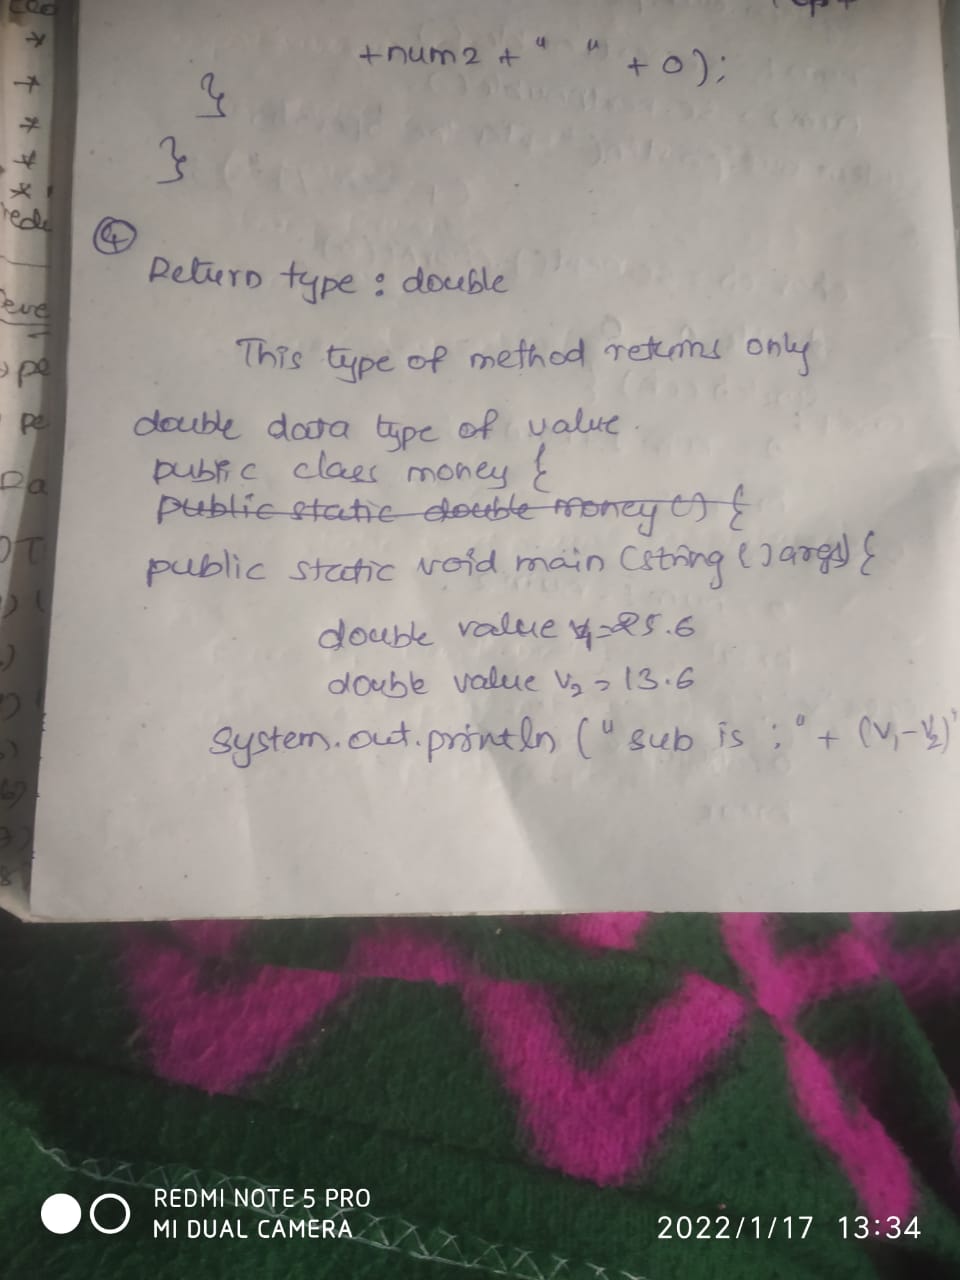 +num2 + " " + 0);
}
}
④
Return type : double
This type of method returns only
double data type of value.
public class money {
public static double money () {
public static void main (string () args) {
double value v1=25.6
double value v2 = 13.6
system.out.println (" sub is ; " + (v1-v2)
REDMI NOTE 5 PRO
MI DUAL CAMERA
2022/1/17 13:34